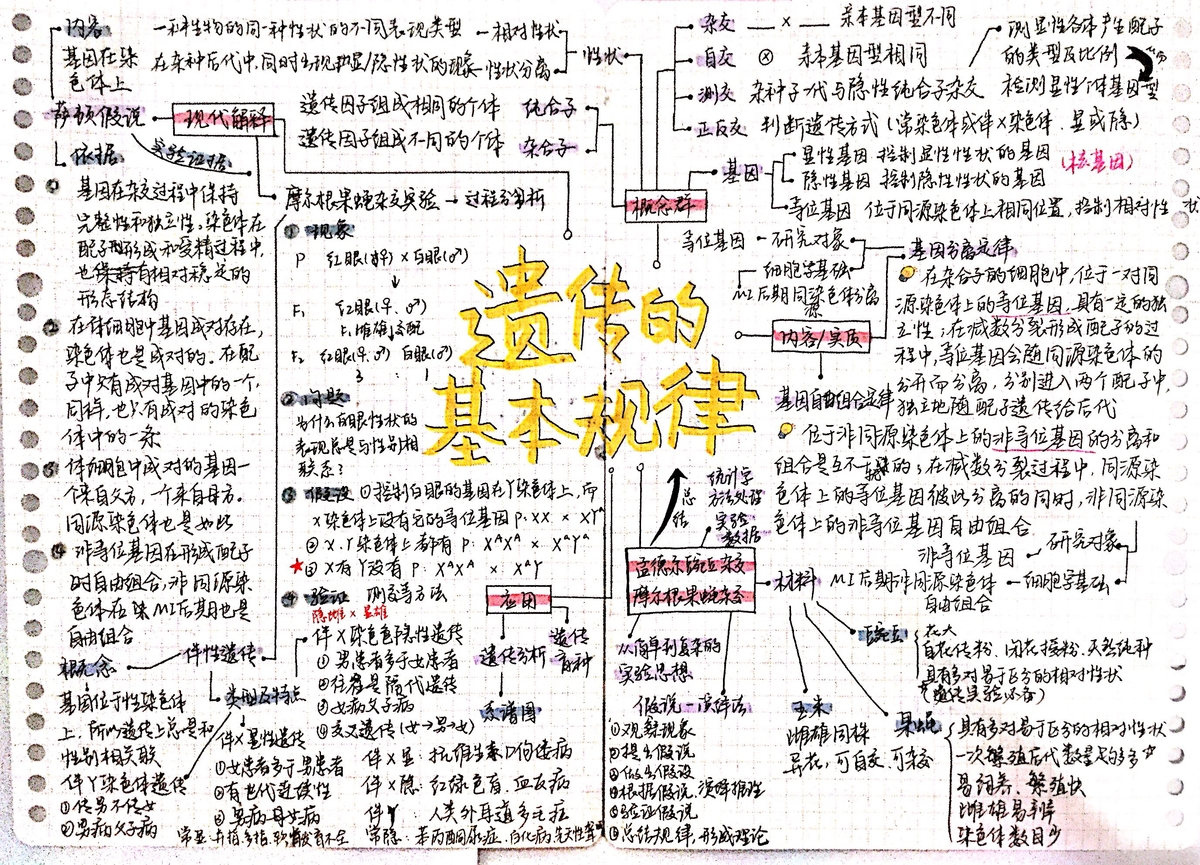 遗传的
基本规律
内容
基因在染
色体上
萨顿假说
现代解释
依据
实验证据
① 基因在杂交过程中保持
完整性和独立性,染色体在
配子形成和受精过程中,
也保持有相对稳定的
形态结构
② 在体细胞中基因成对存在,
染色体也是成对的。在配
子中只有成对基因中的一个,
同样,也只有成对的染色
体中的一条
③ 体细胞中成对的基因一
个来自父方,一个来自母方。
同源染色体也是如此
④ 非等位基因在形成配子
时自由组合,非同源染
色体在 MI后期也是
自由组合
一种生物的同一种性状的不同表现类型 - 相对性状
在杂种后代中,同时出现显/隐性状的现象 性状分离
性状
遗传因子组成相同的个体 纯合子
遗传因子组成不同的个体 杂合子
概念群
杂交 __ × __ 亲本基因型不同
自交 ⊗ 亲本基因型相同
测交 杂种子一代与隐性纯合子杂交
测显性个体产生配子
的类型及比例
检测显性个体基因型
正反交 判断遗传方式(常染色体或伴X染色体、显或隐)
基因
显性基因 控制显性性状的基因
隐性基因 控制隐性性状的基因
(核基因)
等位基因 位于同源染色体上相同位置,控制相对性状
摩尔根果蝇杂交实验 → 过程分析
① 现象
P 红眼(♀) × 白眼(♂)
F₁ 红眼(♀、♂)
↓雌雄交配
F₂ 红眼(♀、♂) 白眼(♂)
3 : 1
② 问题
为什么白眼性状的
表现总是与性别相
联系?
③ 假设 ①控制白眼的基因在Y染色体上,而
X染色体上没有它的等位基因 P: XX × XYᵃ
② X、Y染色体上都有 P: XᴬXᴬ × XᵃYᵃ
★③ X有Y没有 P: XᴬXᴬ × XᵃY
④ 验证 测交等方法
隐雌 × 显雄
内容/实质
等位基因 - 研究对象
细胞学基础
MI后期同源染色体分离
基因分离定律
在杂合子的细胞中,位于一对同
源染色体上的等位基因,具有一定的独
立性;在减数分裂形成配子的过
程中,等位基因会随同源染色体的
分开而分离,分别进入两个配子中,
独立地随配子遗传给后代
基因自由组合定律
位于非同源染色体上的非等位基因的分离和
组合是互不干扰的;在减数分裂过程中,同源染
色体上的等位基因彼此分离的同时,非同源染
色体上的非等位基因自由组合
非等位基因 - 研究对象
MI后期非同源染色体 - 细胞学基础
自由组合
总结
统计学
方法处理
实验
数据
孟德尔豌豆杂交
摩尔根果蝇杂交
从简单到复杂的
实验思想
假说—演绎法
①观察现象
②提出假说
③做出假设
④根据假说,演绎推理
⑤验证假说
⑥总结规律,形成理论
材料
豌豆
花大
自花传粉、闭花授粉、天然纯种
具有多对易于区分的相对性状
玉米
雌雄同株
异花,可自交,可杂交
果蝇
具有多对易于区分的相对性状
一次繁殖后代数量多
易饲养、繁殖快
雌雄易辨
染色体数目少
应用
遗传分析
系谱图
遗传
育种
伴性遗传
概念
基因位于性染色体
上,所以遗传上总是和
性别相关联
类型及特点
伴X染色体隐性遗传
①男患者多于女患者
②往往是隔代遗传
③女病父子病
④交叉遗传(女→男→女)
伴X显性遗传
①女患者多于男患者
②有世代连续性
③男病母女病
伴Y染色体遗传
①传男不传女
②男病父子病
伴X显: 抗维生素D佝偻病
伴X隐: 红绿色盲、血友病
伴Y: 人类外耳道多毛症
常显: 并指、多指、软骨发育不全
常隐: 苯丙酮尿症、白化病、先天性聋哑